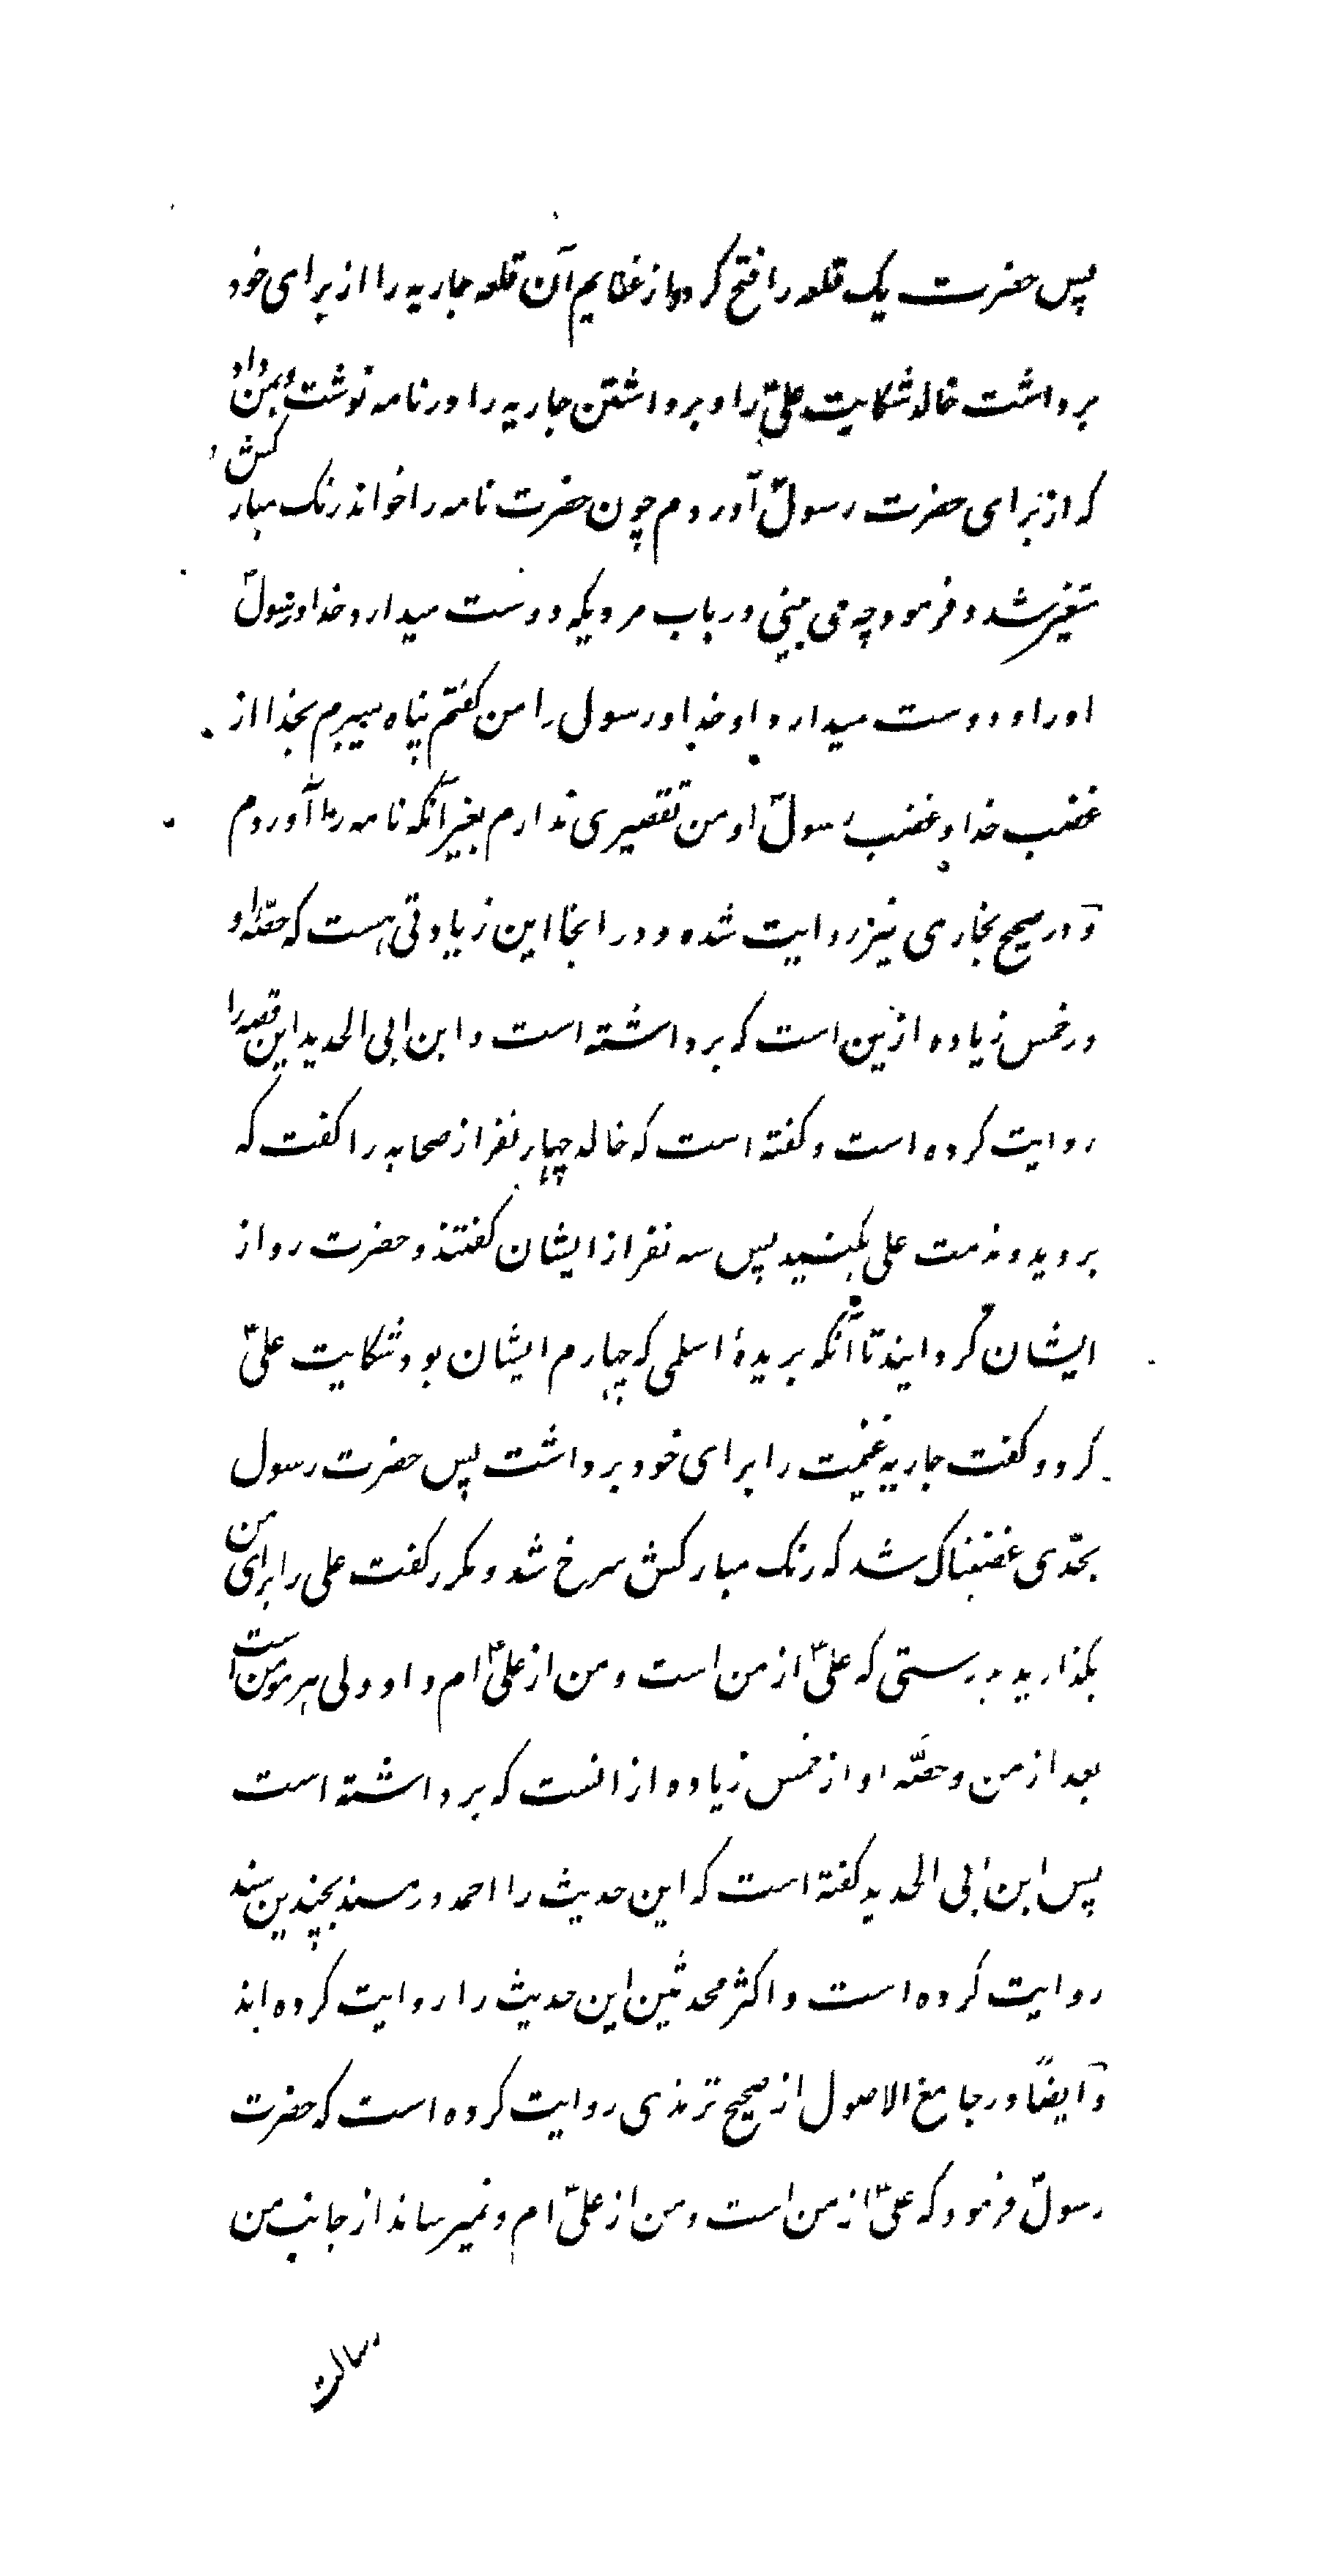 پس حضرت یک قلعه را فتح کرد و از غنایم آن قلعه جاریه را از برای خود
برداشت خالد شکایت علیؑ را و برداشتن جاریه را در نامه نوشت و بمن داد
که از برای حضرت رسولؐ آوردم چون حضرت نامه را خواند رنک مبارکش
متغیر شد و فرمود چه می بینی در باب مردیکه دوست میدارد خدا و رسولؐ
او را و دوست میدارد او خدا و رسول را من کفتم پناه میبرم بخدا از
غضب خدا و غضب رسولؐ او من تقصیری ندارم بغیر آنکه نامه را آوردم
و در صحیح بخاری نیز روایت شده و در انجا این زیادتی هست که حصّه او
در خمس زیاده ازین است که برداشته است و ابن ابی الحدید این قصه را
روایت کرده است و کفته است که خالد چهار نفر از صحابه را کفت که
بروید و مذمت علی بکنید پس سه نفر از ایشان کفتند و حضرت رو از
ایشان کردانید تا آنکه بریدهٔ اسلمی که چهارم ایشان بود شکایت علیؑ
کرد و کفت جاریه غنیمت را برای خود برداشت پس حضرت رسول
بحدّی غضبناک شد که رنک مبارکش سرخ شد و مکرر کفت علی را برای من
بکذارید بدرستی که علیؑ از من است و من از علیؑ ام و او ولی هر مؤمن است
بعد از من و حصّه او از خمس زیاده از انست که برداشته است
پس ابن ابی الحدید کفته است که این حدیث را احمد در مسند بچندین سند
روایت کرده است و اکثر محدثین این حدیث را روایت کرده اند
و ایضًا در جامع الاصول از صحیح ترمذی روایت کرده است که حضرت
رسولؐ فرمود که علیؑ از من است و من از علیؑ ام و نمیرساند از جانب من